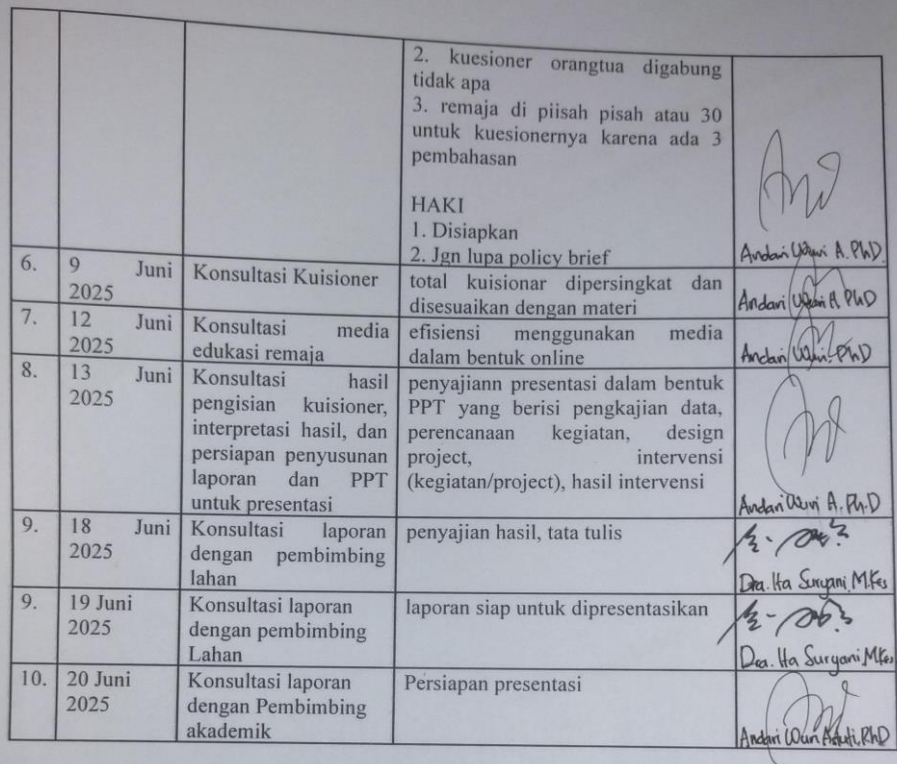 2. kuesioner orangtua digabung
tidak apa
3. remaja di piisah pisah atau 30
untuk kuesionernya karena ada 3
pembahasan
HAKI
1. Disiapkan
2. Jgn lupa policy brief
Andari Wuri A. PhD.
6.
9 Juni
2025
Konsultasi Kuisioner
total kuisionar dipersingkat dan
disesuaikan dengan materi
Andari Wuri A. PhD
7.
12 Juni
2025
Konsultasi media
edukasi remaja
efisiensi menggunakan media
dalam bentuk online
Andari Wuri. PhD
8.
13 Juni
2025
Konsultasi hasil
pengisian kuisioner,
interpretasi hasil, dan
persiapan penyusunan
laporan dan PPT
untuk presentasi
penyajiann presentasi dalam bentuk
PPT yang berisi pengkajian data,
perencanaan kegiatan, design
project, intervensi
(kegiatan/project), hasil intervensi
Andari Wuri A. Ph.D
9.
18 Juni
2025
Konsultasi laporan
dengan pembimbing
lahan
penyajian hasil, tata tulis
Dra. Ita Suryani, M.Kes
9.
19 Juni
2025
Konsultasi laporan
dengan pembimbing
Lahan
laporan siap untuk dipresentasikan
Dra. Ita Suryani, M.Kes
10.
20 Juni
2025
Konsultasi laporan
dengan Pembimbing
akademik
Persiapan presentasi
Andari Wuri Astuti, PhD